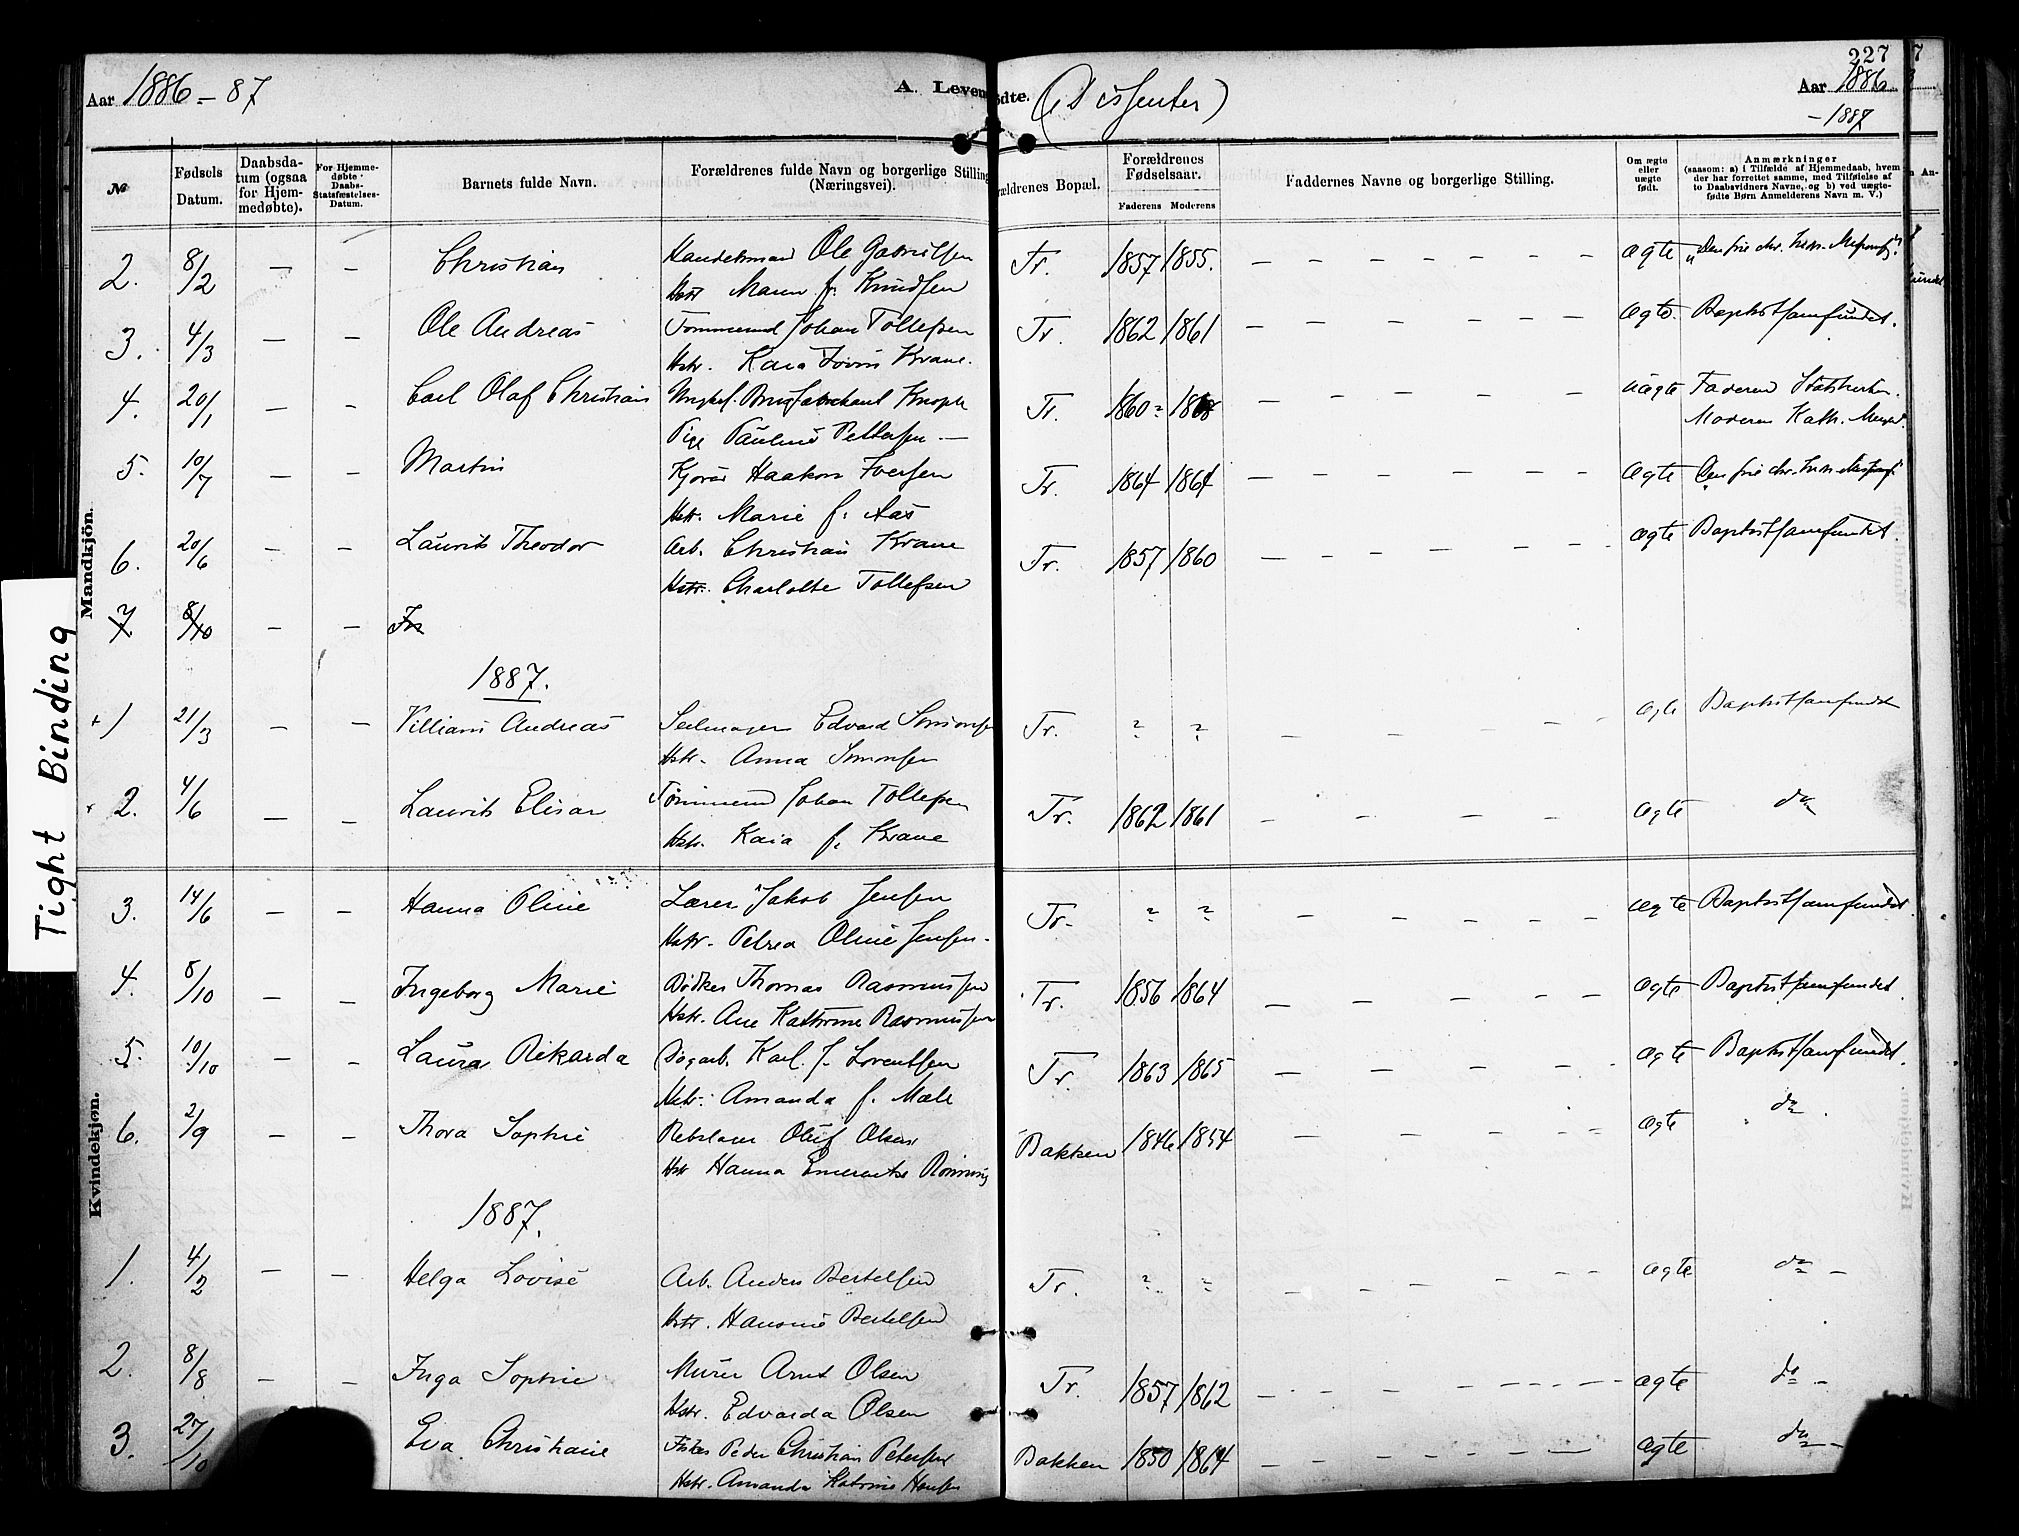 Aar 1886-87
A. Leven
ødte. (Dissenter)
227
7
Aar 1886
-1887
№
Fødsels Datum.
Daabsdatum (ogsaa for Hjemmedøbte).
For Hjemmedøbte Daabs-Statsfæstelses-Datum.
Barnets fulde Navn.
Forældrenes fulde Navn og borgerlige Stilling (Næringsvei).
ældrenes Bopæl.
Forældrenes Fødselsaar.
Faderens Moderens
Faddernes Navne og borgerlige Stilling.
Om ægte eller uægte født.
Anmærkninger
(saasom: a) i Tilfælde af Hjemmedaab, hvem der har forrettet samme, med Tilføielse af to Daabsvidners Navne, og b) ved uægtefødte Børn Anmelderens Navn m. V.)
n An-
Mandkjön.
Tight Binding
2. 8/2 – – Christian Handelsmand Ole Gabrielsen Tr. 1857 1855. – ægte "Den frie chr. luth.
Hstr Maren f. Knudsen
3. 4/3 – – Ole Andreas Tømmermd Johan Tollefsen Tr. 1862 1861 – ægte. Baptistsamfundet.
Hstr. Kaia Krane.
4. 20/1 – – Carl Olaf Christian Ungkarl Pige Pauline Pettersen – Tr. 1860 – uægte Faderen Statskirken
Moderen Kath. Meng.
5. 10/7 – – Martin Haakon Iversen Tr. 1864 1864 – ægte Den frie chr. luth.
Hstr. Marie f. Aas
6. 20/6 – – Laurits Theodor Arb. Christian Krane Tr. 1857 1860 – ægte Baptistsamfundet.
Hstr. Charlotte Tollefsen
7 8/10 – –
1887.
+ 1 21/3 – – Villiam Andreas Seilmager Edvard Simonsen Tr. ? ? – ægte Baptistsamfundet
Hstr. Anna Simonsen
2. 4/6 – – Laurits Elisar Tømmermd Johan Tollefsen Tr. 1862 1861 – ægte do
Hstr. Kaia f. Krane
Kvindekjøn.
3. 14/6 – – Hanna Oline Lærer Jakob Jensen Tr. ? ? – ægte Baptistsamfundet.
Hstr. Petrea Oline Jensen.
4. 8/10 – – Ingeborg Marie Bødker Thomas Rasmussen Tr. 1856 1864 – ægte Baptistsamfundet.
Hstr. Ane Kathrine Rasmussen
5. 10/10 – – Laura Rikarda Karl J. Lorentsen Tr. 1863 1865 – ægte Baptistsamfundet.
Hstr. Amanda f. Mæle
6. 2/9 – – Thora Sophie Rebslaer Oluf Olsen Bakken 1846 1854 – ægte do.
Hstr Hanna Emerentse Rönning
1887.
1. 4/2 – – Helga Lovise Arb. Anders Bertelsen Tr. ? ? – ægte do –
Hstr. Hansine Bertelsen
2. 8/8 – – Inga Sophie Murer Arnt Olsen Tr. 1857 1862 – ægte do –
Hstr. Edvarda Olsen
3. 27/10 Eva Christiane Fisker Peder Christian Petersen Bakken 1850 1864 – ægte do –
Hstr. Amanda Katrine Hansen